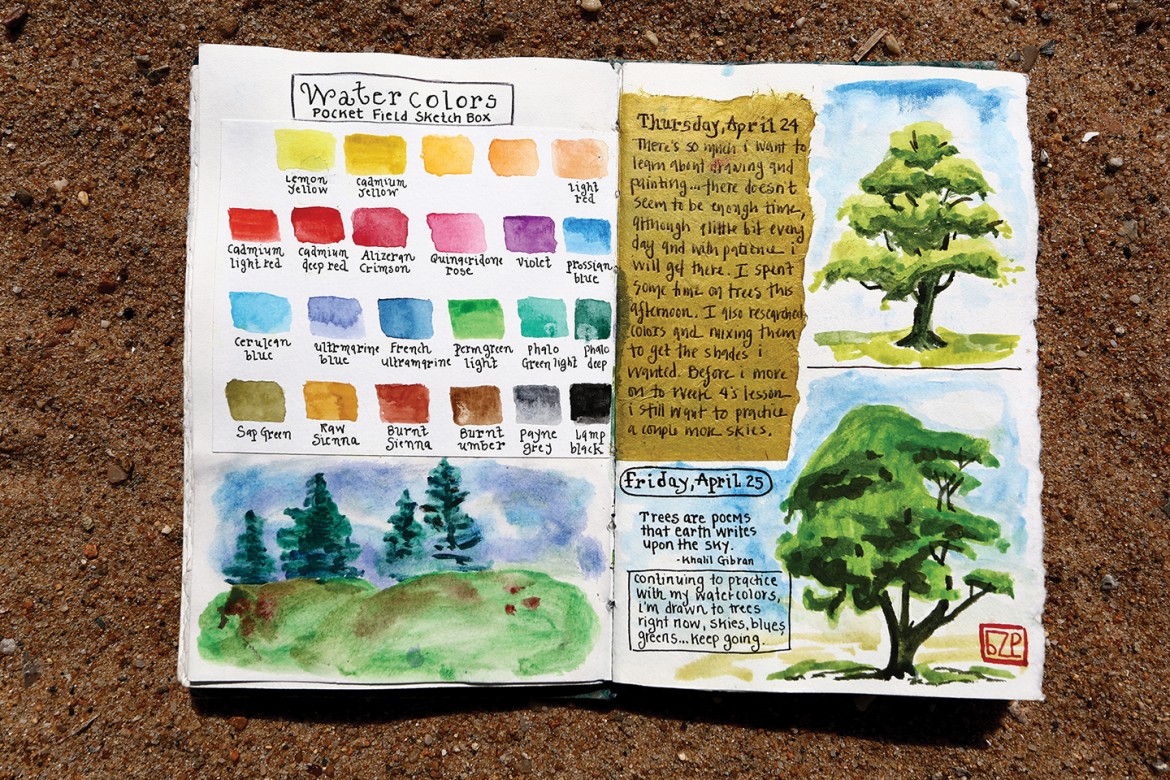 Water colors
Pocket Field Sketch Box
Lemon
Yellow
Cadmium
Yellow
light
red
Cadmium
light red
Cadmium
deep red
Alizeran
Crimson
Quinacridone
rose
Violet
prossian
blue
Cerulean
blue
ultrmarine
blue
French
ultramarine
Permgreen
light
Phalo
Green light
phalo
deep
Sap Green
Raw
Sienna
Burnt
Sienna
Burnt
umber
Payne
grey
Lamp
black
Thursday, April 24
There's so much i want to
learn about drawing and
painting... there doesn't
seem to be enough time,
although a little bit every
day and with patience i
will get there. I spent
some time on trees this
afternoon. I also researched
colors and mixing them
to get the shades i
wanted. Before i more
on to week 4's lesson
i still want to practice
a couple more skies.
Friday, April 25
Trees are poems
that earth writes
upon the sky.
-Khalil Gibran
continuing to practice
with my watercolors,
i'm drawn to trees
right now, skies, blues,
greens... keep going.